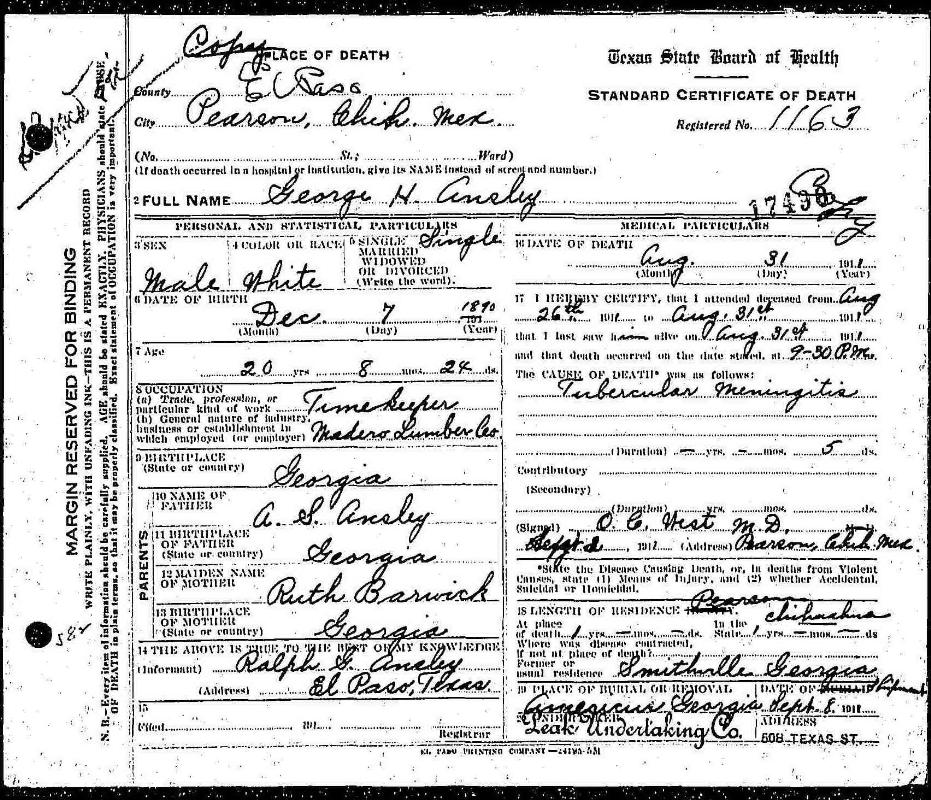 Copy
PLACE OF DEATH
Texas State Board of Health
County El Paso
STANDARD CERTIFICATE OF DEATH
City Pearson, Chih. Mex.
Registered No. 1163
(No. St.; Ward)
(If death occurred in a hospital or institution, give its NAME instead of street and number.)
2 FULL NAME George H. Ansley
PERSONAL AND STATISTICAL PARTICULARS
3 SEX Male
4 COLOR OR RACE White
5 SINGLE MARRIED WIDOWED OR DIVORCED (Write the word). Single
6 DATE OF BIRTH
Dec. 7 1890
(Month) (Day) (Year)
7 Age
20 yrs 8 mos. 24 ds.
8 OCCUPATION
(a) Trade, profession, or
particular kind of work Timekeeper
(b) General nature of industry,
business or establishment in
which employed (or employer) Madero Lumber Co
9 BIRTHPLACE
(State or country) Georgia
PARENTS
10 NAME OF
FATHER A. S. Ansley
11 BIRTHPLACE
OF FATHER
(State or country) Georgia
12 MAIDEN NAME
OF MOTHER Ruth Barwick
13 BIRTHPLACE
OF MOTHER
(State or country) Georgia
14 THE ABOVE IS TRUE TO THE BEST OF MY KNOWLEDGE
(Informant) Ralph G. Ansley
(Address) El Paso, Texas
15
Filed 191
Registrar
MEDICAL PARTICULARS
16 DATE OF DEATH
Aug. 31 1911
(Month) (Day) (Year)
17 I HEREBY CERTIFY, that I attended deceased from Aug
26th 1911 to Aug. 31st 1911
that I last saw him alive on Aug. 31st 1911
and that death occurred on the date stated, at 9-30 P.m.
The CAUSE OF DEATH* was as follows:
Tubercular Meningitis
(Duration) — yrs. — mos. 5 ds.
Contributory
(Secondary)
(Duration) yrs. mos. ds.
(Signed) O. C. West M.D.
Sept 2, 1911 (Address) Pearson, Chih Mex.
*State the Disease Causing Death, or, in deaths from Violent
Causes, state (1) Means of Injury, and (2) whether Accidental,
Suicidal or Homicidal.
18 LENGTH OF RESIDENCE Pearson Chihuahua
At place In the
of death 1 yrs. — mos. — ds State 1 yrs. — mos. — ds
Where was disease contracted,
if not at place of death?
Former or
usual residence Smithville Georgia
19 PLACE OF BURIAL OR REMOVAL
Americus Georgia
DATE OF Shipment
Sept. 8, 1911
20 UNDERTAKER
Leak Undertaking Co.
ADDRESS
508 TEXAS ST.
EL PASO PRINTING COMPANY
MARGIN RESERVED FOR BINDING
WRITE PLAINLY, WITH UNFADING INK—THIS IS A PERMANENT RECORD
N. B.—Every item of information should be carefully supplied. AGE should be stated EXACTLY. PHYSICIANS should state CAUSE
OF DEATH in plain terms, so that it may be properly classified. Exact statement of OCCUPATION is very important.
582